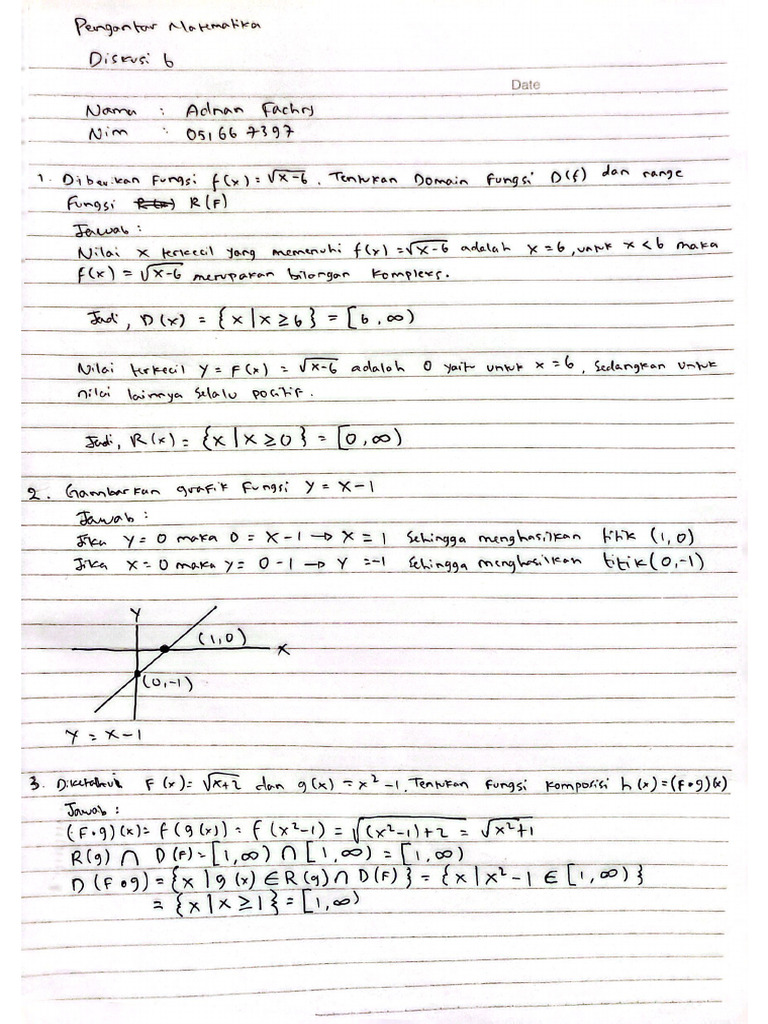 Pengantar Matematika
Diskusi 6
Date
Nama : Adnan Fachry
Nim : 051667397
1. Diberikan fungsi f(x) = √x-6. Tentukan Domain fungsi D(f) dan range
fungsi R(F)
Jawab :
Nilai x terkecil yang memenuhi f(x) = √x-6 adalah x = 6, untuk x < 6 maka
f(x) = √x-6 merupakan bilangan kompleks.
Jadi, D(x) = {x | x ≥ 6} = [6, ∞)
Nilai terkecil y = f(x) = √x-6 adalah 0 yaitu untuk x = 6, sedangkan untuk
nilai lainnya selalu positif.
Jadi, R(x) = {x | x ≥ 0} = [0, ∞)
2. Gambarkan grafik fungsi y = x-1
Jawab :
Jika y = 0 maka 0 = x-1 → x = 1 sehingga menghasilkan titik (1,0)
Jika x = 0 maka y = 0-1 → y = -1 sehingga menghasilkan titik (0,-1)
Y
(1,0)
X
(0,-1)
y = x-1
3. Diketahui F(x) = √x+2 dan g(x) = x²-1. Tentukan fungsi komposisi h(x) = (F∘g)(x)
Jawab :
(F∘g)(x) = f(g(x)) = f(x²-1) = √(x²-1)+2 = √x²+1
R(g) ∩ D(F) = [1,∞) ∩ [1,∞) = [1,∞)
D(F∘g) = {x | g(x) ∈ R(g) ∩ D(F)} = {x | x²-1 ∈ [1,∞)}
= {x | x ≥ 1} = [1,∞)